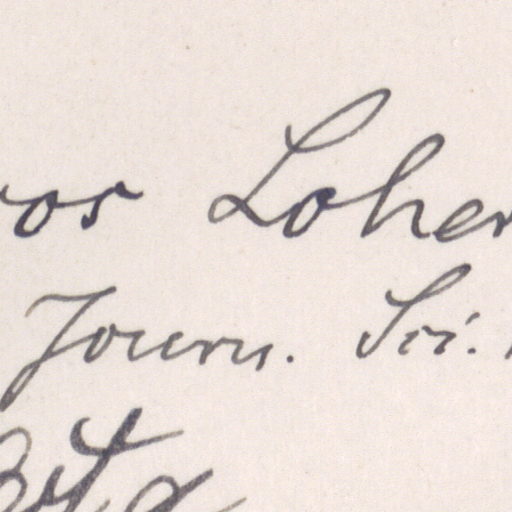 os Loher
Journ. Sci.